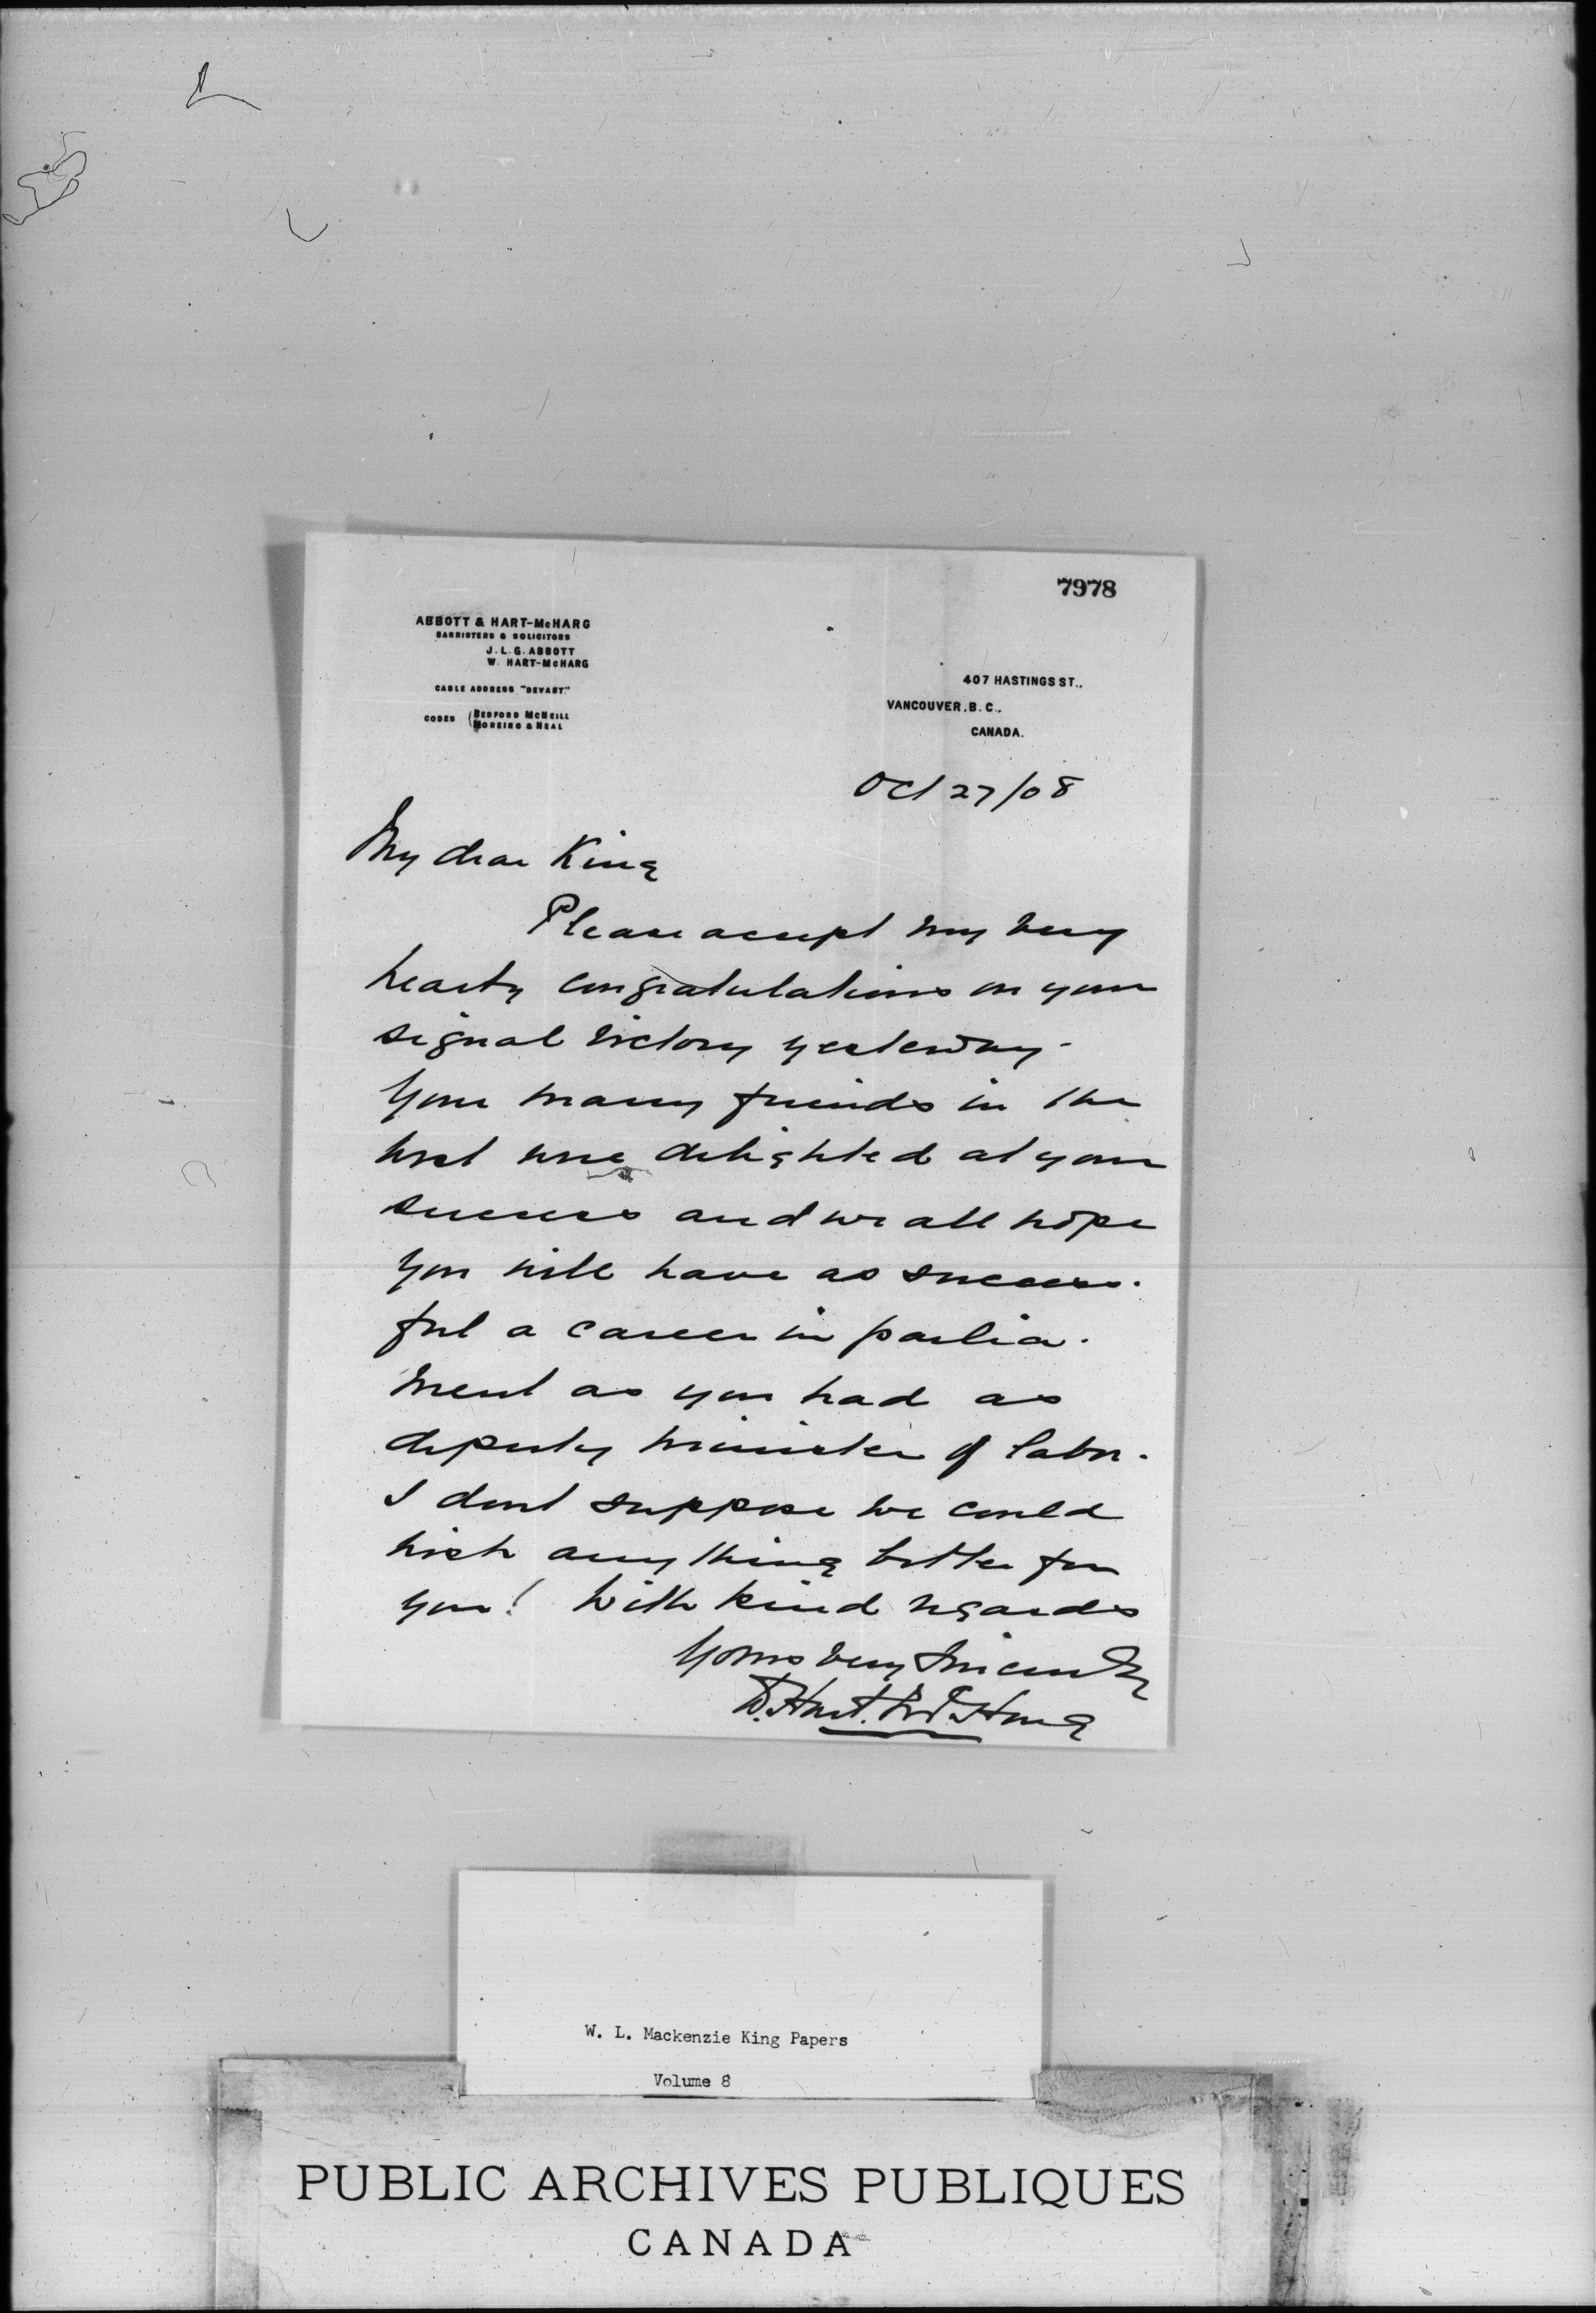 7978
ABBOTT & HART-McHARG
BARRISTERS & SOLICITORS
J. L. G. ABBOTT
W. HART-McHARG
CABLE ADDRESS "DEVART."
CODES BEDFORD McNEILL
MOREING & NEAL
407 HASTINGS ST.,
VANCOUVER, B. C.,
CANADA.
Oct 27/08
My dear King
Please accept my very
hearty congratulations on your
signal victory yesterday.
Your many friends in the
west were delighted at your
success and we all hope
you will have as success-
ful a career in parlia-
ment as you had as
deputy minister of labor.
I dont suppose we could
wish anything better for
you! With kind regards
Yours very sincerely
W. Hart-McHarg
W. L. Mackenzie King Papers
Volume 8
PUBLIC ARCHIVES PUBLIQUES
CANADA